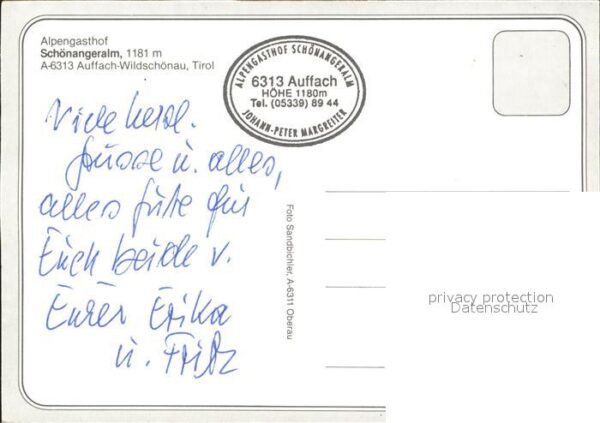 Alpengasthof
Schönangeralm, 1181 m
A-6313 Auffach-Wildschönau, Tirol
ALPENGASTHOF SCHÖNANGERALM
6313 Auffach
HÖHE 1180m
Tel. (05339) 89 44
JOHANN-PETER MARGREITER
Viele herzl.
Grüsse u. alles,
alles Gute für
Euch beide v.
Eurer Erika
u. Fritz
Foto Sandbichler, A-6311 Oberau
privacy protection
Datenschutz